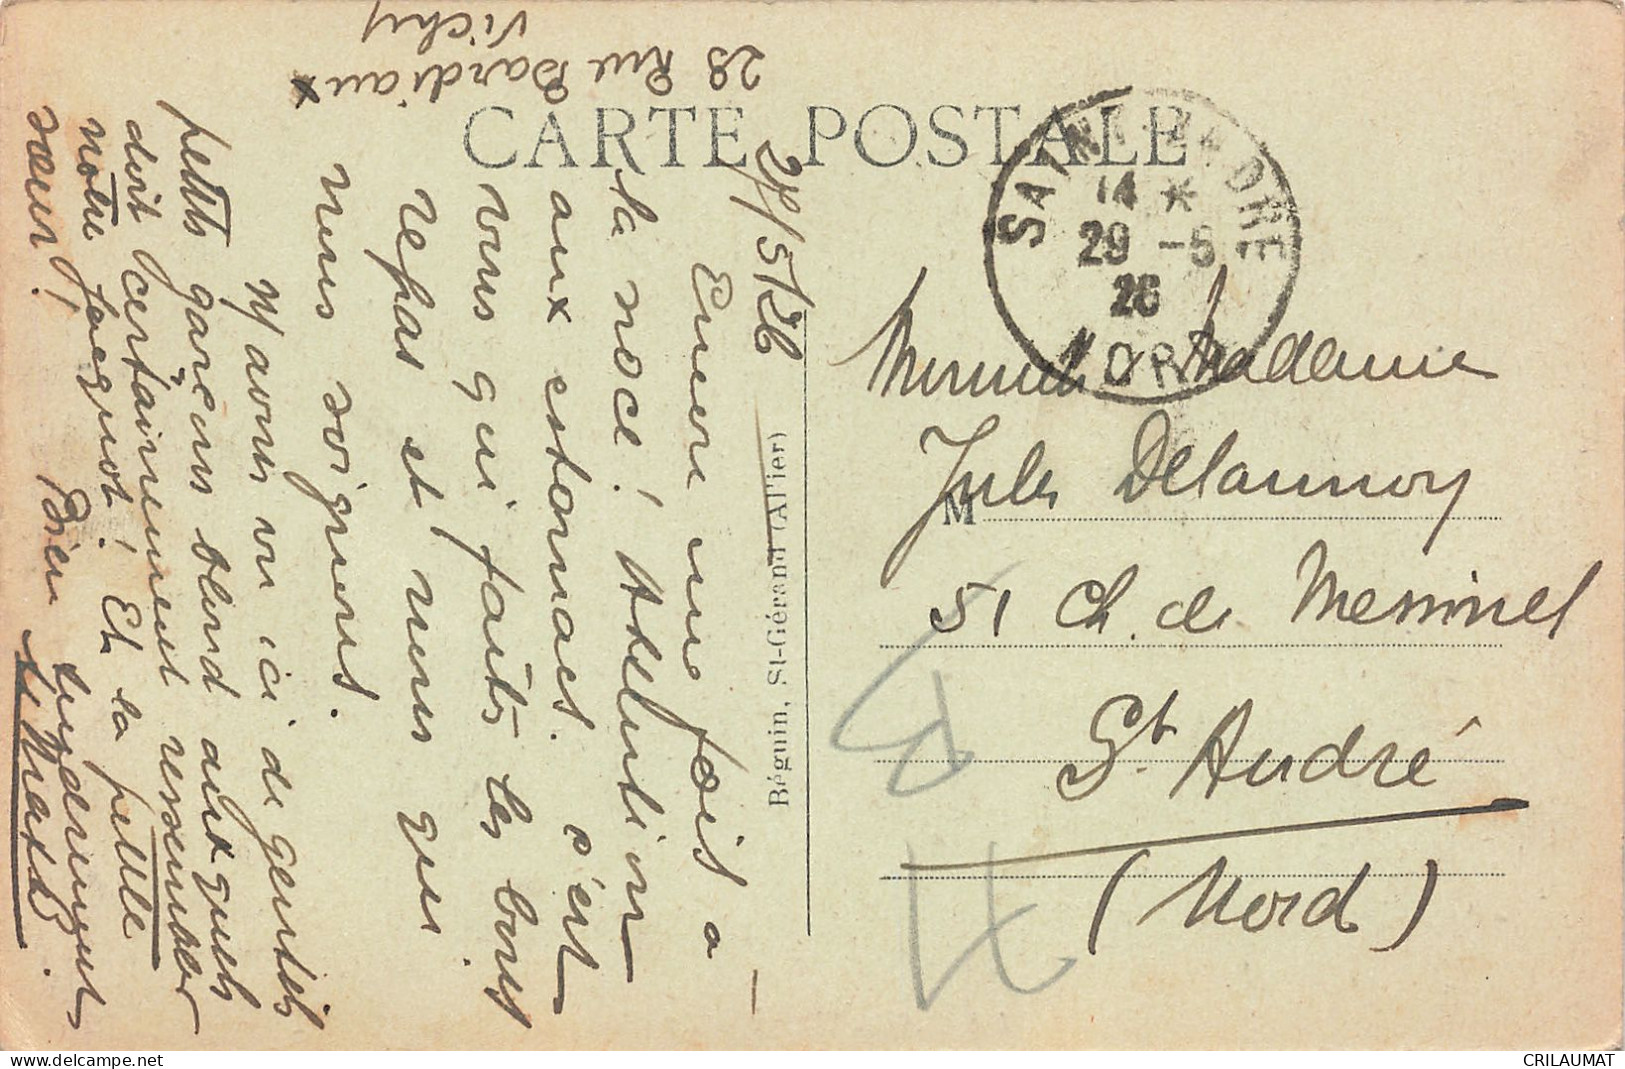 CARTE POSTALE
29 Rue Bardiaux
Vichy
27/5/26
Encore une fois à
la noce! Attention
aux estomacs. C'est
vous qui faites les bons
repas et nous qui
nous soignons.
N'avons vu ici de gentils
petits garçons blonds auxquels
doit certainement ressembler
notre Jacquot! Et la petite
sœur!
Bien tendrement
Béguin, St-Gérand (Allier)
SAINT-ANDRE
14 *
29 -5
26
NORD
Monsieur Madame
M Jules Delannoy
51 Ch. de Messines
St. André
(Nord)
www.delcampe.net
CRILAUMAT